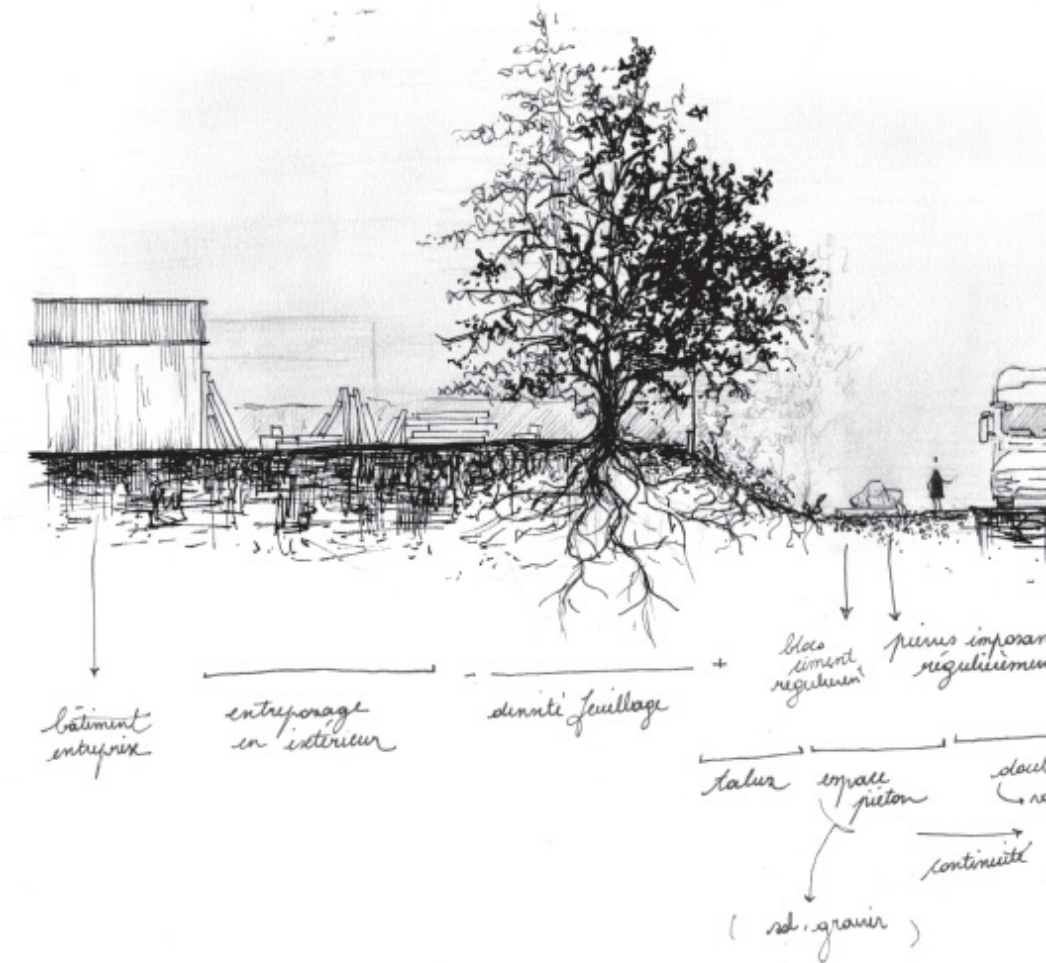 bâtiment
entreprise
entreposage
en extérieur
- densité feuillage +
blocs
ciment
régulièrement
pierres imposan
régulièremen
talus
espace
piéton
( sol : gravier )
continuité